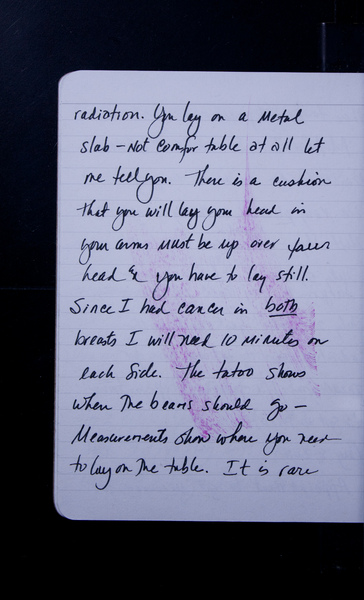 radiation. You lay on a metal
slab - not comfor table at all let
me tell you. There is a cushion
that you will lay your head in
your arms must be up over your
head & you have to lay still.
Since I had cancer in both
breasts I will need 10 minutes on
each side. The tatoo shows
when the beams should go -
Measurements show where you need
to lay on the table. It is rare